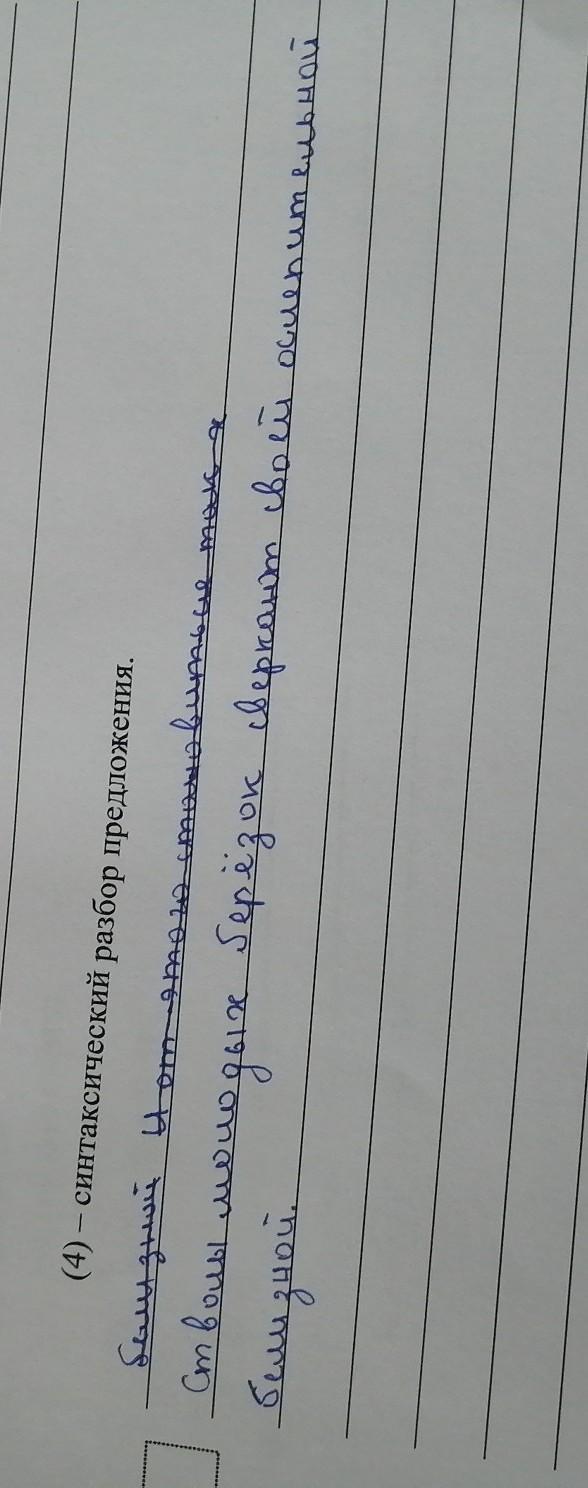 (4) – синтаксический разбор предложения.
белизной И от этого становиться так х
Стволы молодых берёзок сверкают своей ослепительной
белизной.